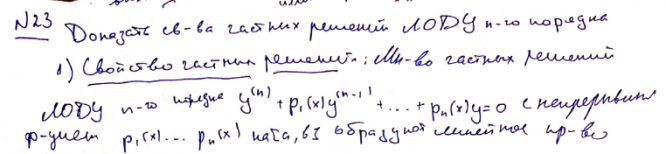 N23 Доказать св-ва частных решений ЛОДУ n-го порядка
1) Свойство частных решений: Мн-во частных решений
ЛОДУ n-го порядка y⁽ⁿ⁾+p₁(x)y⁽ⁿ⁻¹⁾+...+pₙ(x)y=0 с непрерывн
ф-циями p₁(x)...pₙ(x) на [a,b] образуют линейное пр-во